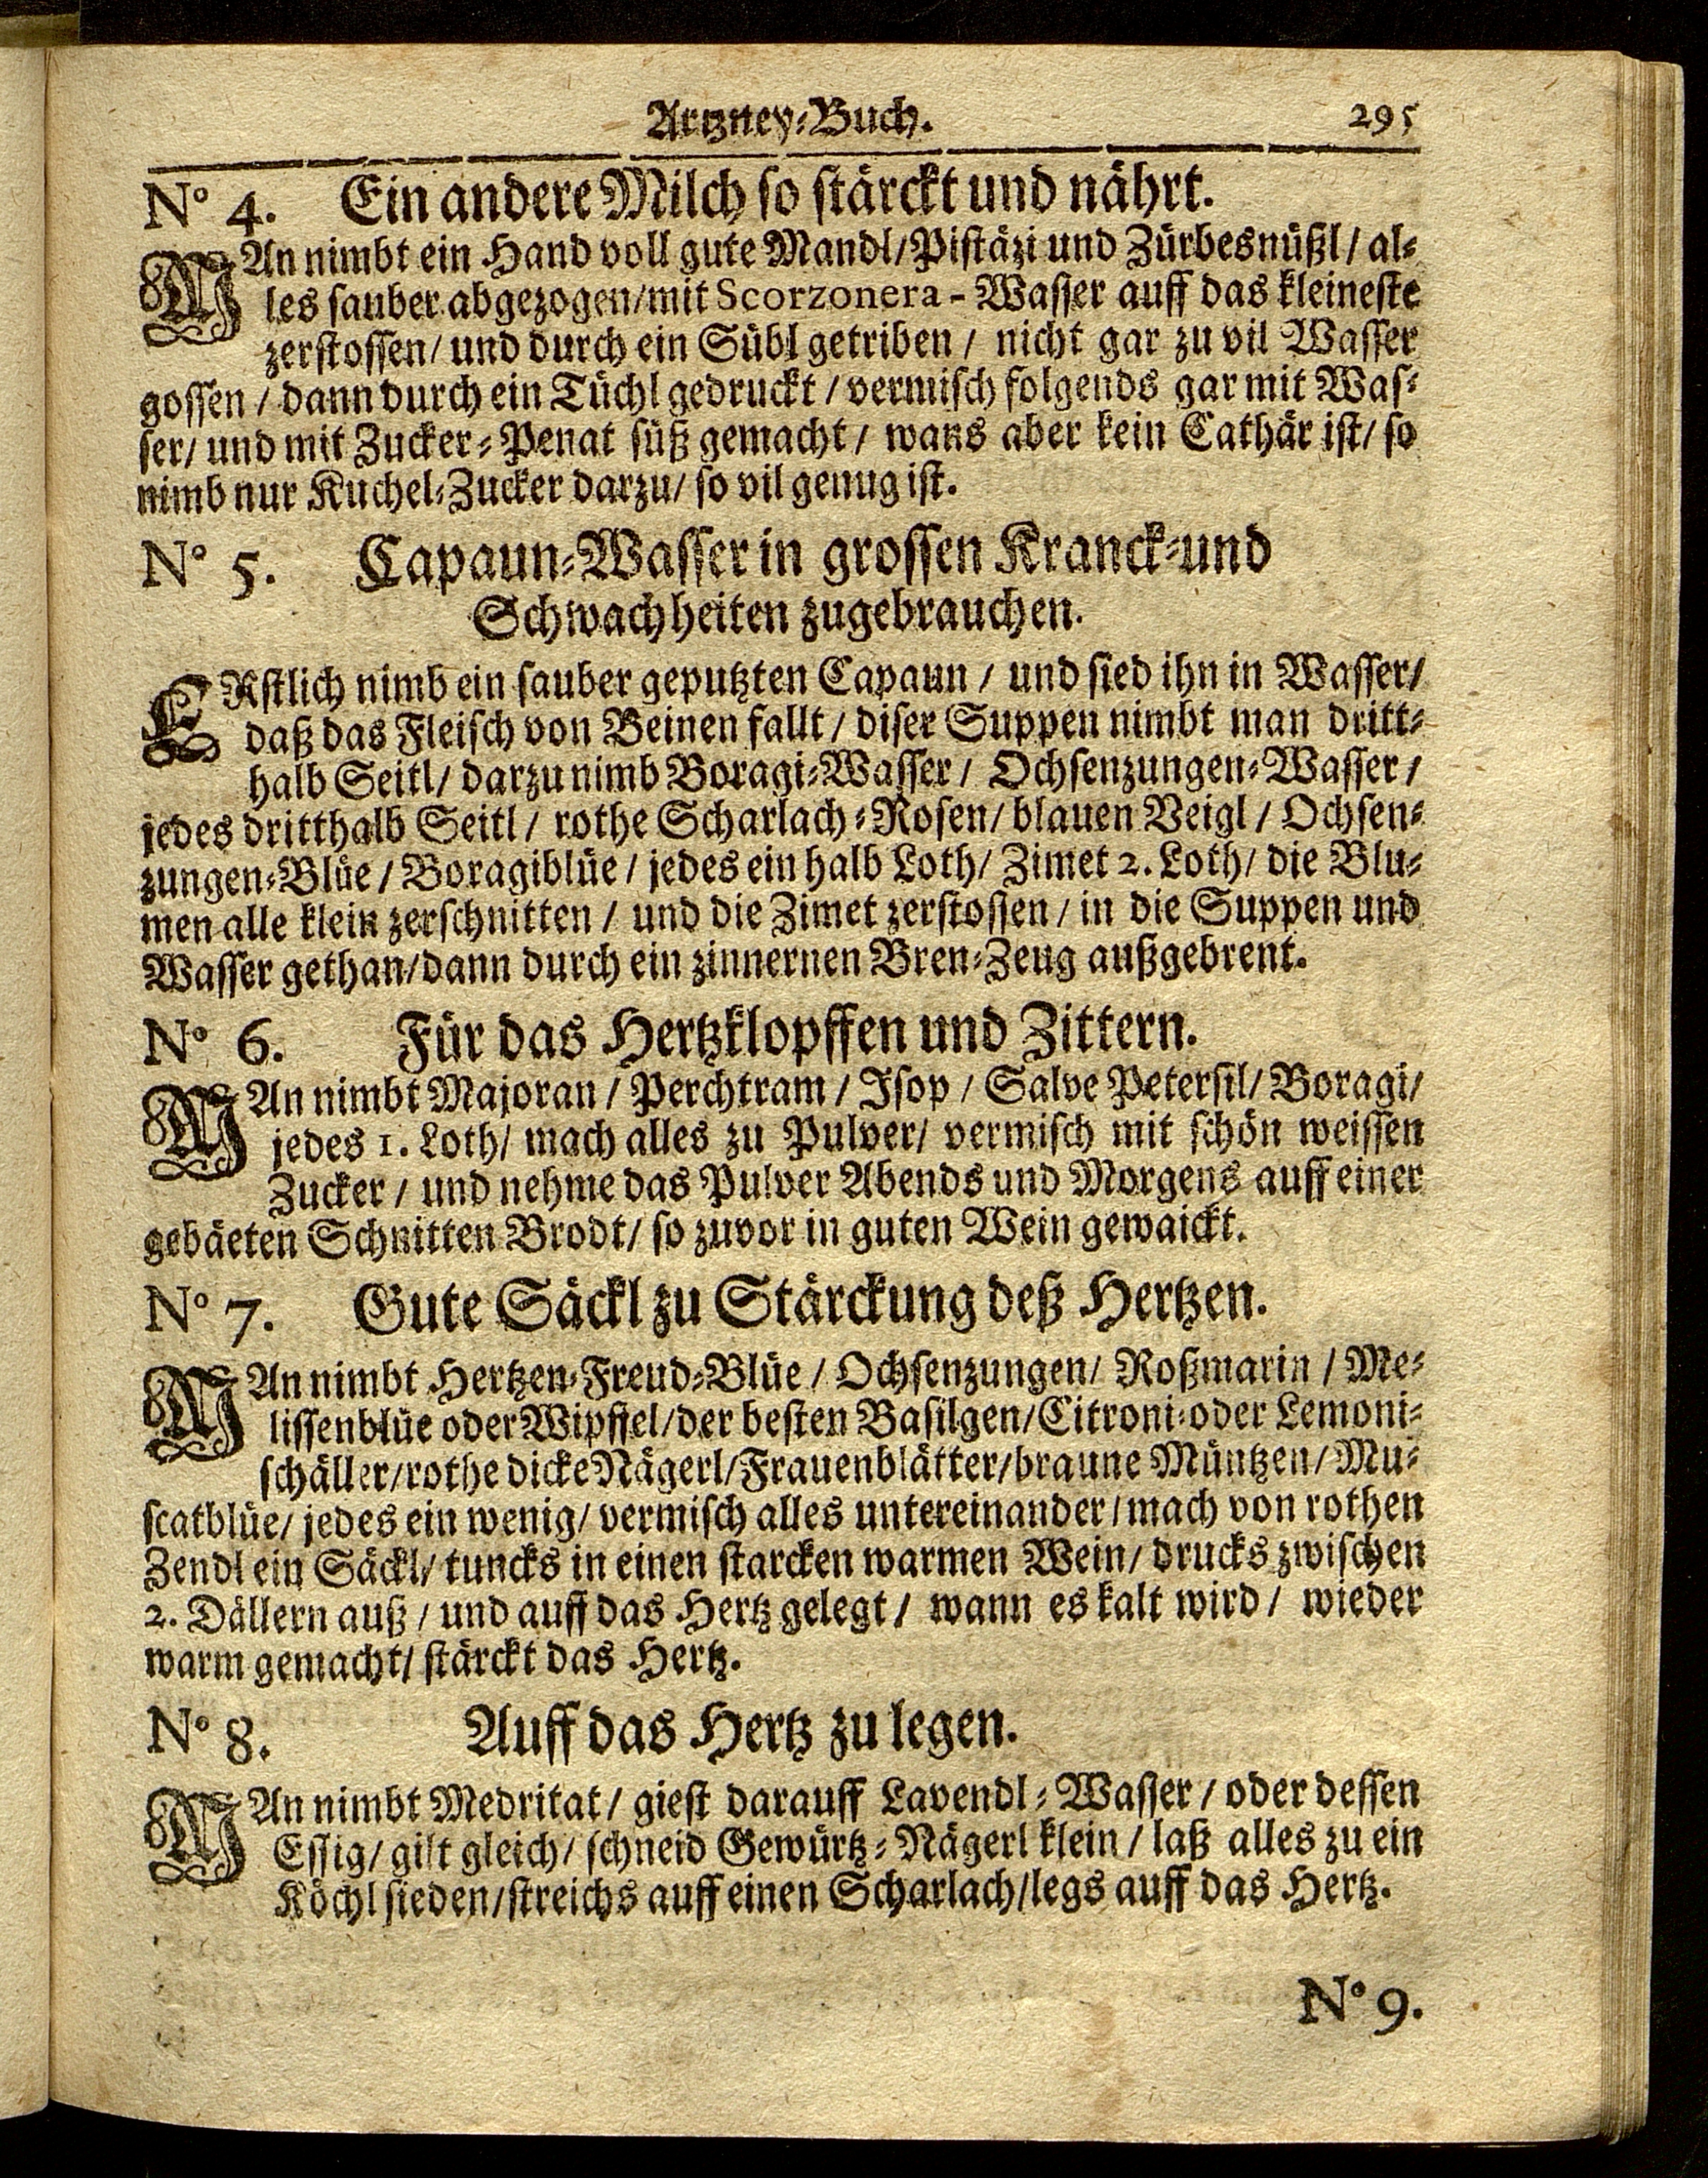 Artzney-Buch. 295
No 4. Ein andere Milch so stärckt und nährt.
MAn nimbt ein Hand voll gute Mandl/Pistäzi und Zürbesnüßl/ al-
les sauber abgezogen/mit Scorzonera - Wasser auff das kleineste
zerstossen/ und durch ein Sübl getriben/ nicht gar zu vil Wasser
gossen/ dann durch ein Tüchl gedruckt/ vermisch folgends gar mit Was-
ser/ und mit Zucker-Penat süß gemacht/ wans aber kein Cathär ist/ so
nimb nur Kuchel-Zucker darzu/ so vil genug ist.
No 5. Capaun-Wasser in grossen Kranck-und
Schwachheiten zugebrauchen.
ERstlich nimb ein sauber geputzten Capaun/ und sied ihn in Wasser/
daß das Fleisch von Beinen fallt/ diser Suppen nimbt man dritt-
halb Seitl/ darzu nimb Boragi-Wasser/ Ochsenzungen-Wasser/
jedes dritthalb Seitl/ rothe Scharlach-Rosen/ blauen Veigl/ Ochsen-
zungen-Blüe/ Boragiblüe/ jedes ein halb Loth/ Zimet 2. Loth/ die Blu-
men alle klein zerschnitten/ und die Zimet zerstossen/ in die Suppen und
Wasser gethan/dann durch ein zinnernen Bren-Zeug außgebrent.
No 6. Für das Hertzklopffen und Zittern.
MAn nimbt Majoran/ Perchtram/ Isop/ Salve Petersil/ Boragi/
jedes 1. Loth/ mach alles zu Pulver/ vermisch mit schön weissen
Zucker/ und nehme das Pulver Abends und Morgens auff einer
gebäeten Schnitten Brodt/ so zuvor in guten Wein gewaickt.
No 7. Gute Säckl zu Stärckung deß Hertzen.
MAn nimbt Hertzen-Freud-Blüe/ Ochsenzungen/ Roßmarin/ Me-
lissenblüe oder Wipffel/der besten Basilgen/Citroni-oder Lemoni-
schäller/rothe dicke Nägerl/Frauenblätter/braune Müntzen/Mu-
scatblüe/ jedes ein wenig/ vermisch alles untereinander/mach von rothen
Zendl ein Säckl/ tuncks in einen starcken warmen Wein/ drucks zwischen
2. Dällern auß/ und auff das Hertz gelegt/ wann es kalt wird/ wieder
warm gemacht/ stärckt das Hertz.
No 8. Auff das Hertz zu legen.
MAn nimbt Medritat/ giest darauff Lavendl-Wasser/ oder dessen
Essig/ gilt gleich/ schneid Gewürtz-Nägerl klein/ laß alles zu ein
Köchl sieden/streichs auff einen Scharlach/legs auff das Hertz.
No 9.